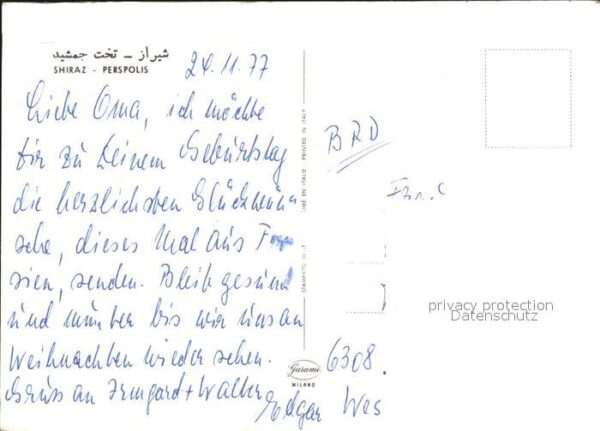 شیراز – تخت جمشید
SHIRAZ - PERSPOLIS
24.11.77
Liebe Oma, ich möchte
dir zu deinem Geburtstag
die herzlichsten Glückwün
sche, dieses Mal aus Per
sien, senden. Bleib gesund
und munter bis wir uns an
Weihnachten wieder sehen.
Gruss an Irmgard + Walter
Edgar
PRINTED IN ITALY
IMPRIMÉ EN ITALIE
STAMPATO IN IT
Garami
MILANO
BRD
privacy protection
Datenschutz
6308
Wes